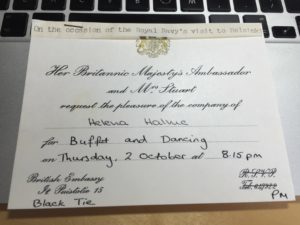 On the occasion of the Royal Navy's visit to Helsinki
Her Britannic Majesty's Ambassador
and Mrs Stuart
request the pleasure of the company of
Helena Halme
for Buffet and Dancing
on Thursday, 2 October at 8.15 pm
British Embassy
R.S.V.P.
It. Puistotie 15
Tel.
Black Tie
PM